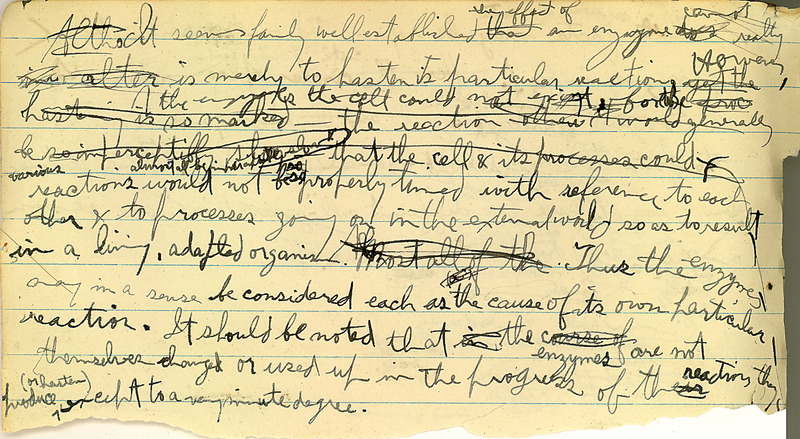 the effect of cannot
Altho it seems fairly well established that an enzyme does really
However,
alter is merely to hasten its particular reaction, yet the
has A the enzymes the cell could not exist, for the proc
is so marked the reaction otherwise it would generally
be so imperceptible that the cell & its processes could
various almost by imperatively slow so
reactions would not be properly timed with reference to each
other & to processes going on in the external world so as to result
in a living, adapted organism. Most all of the Thus the enzymes
may in a sense be considered each as the cause of its own particular
reaction. It should be noted that in the course of
enzymes are not
themselves changed or used up in the progress of their reactions they
(or hasten)
produce, except to a very minute degree.